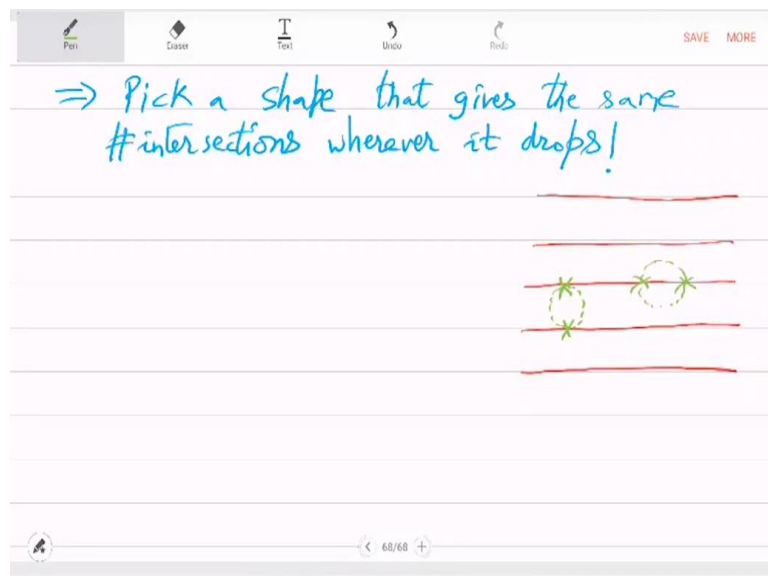 Pen Eraser Text Undo Redo SAVE MORE
⇒ Pick a shape that gives the same
#intersections wherever it drops!
68/68